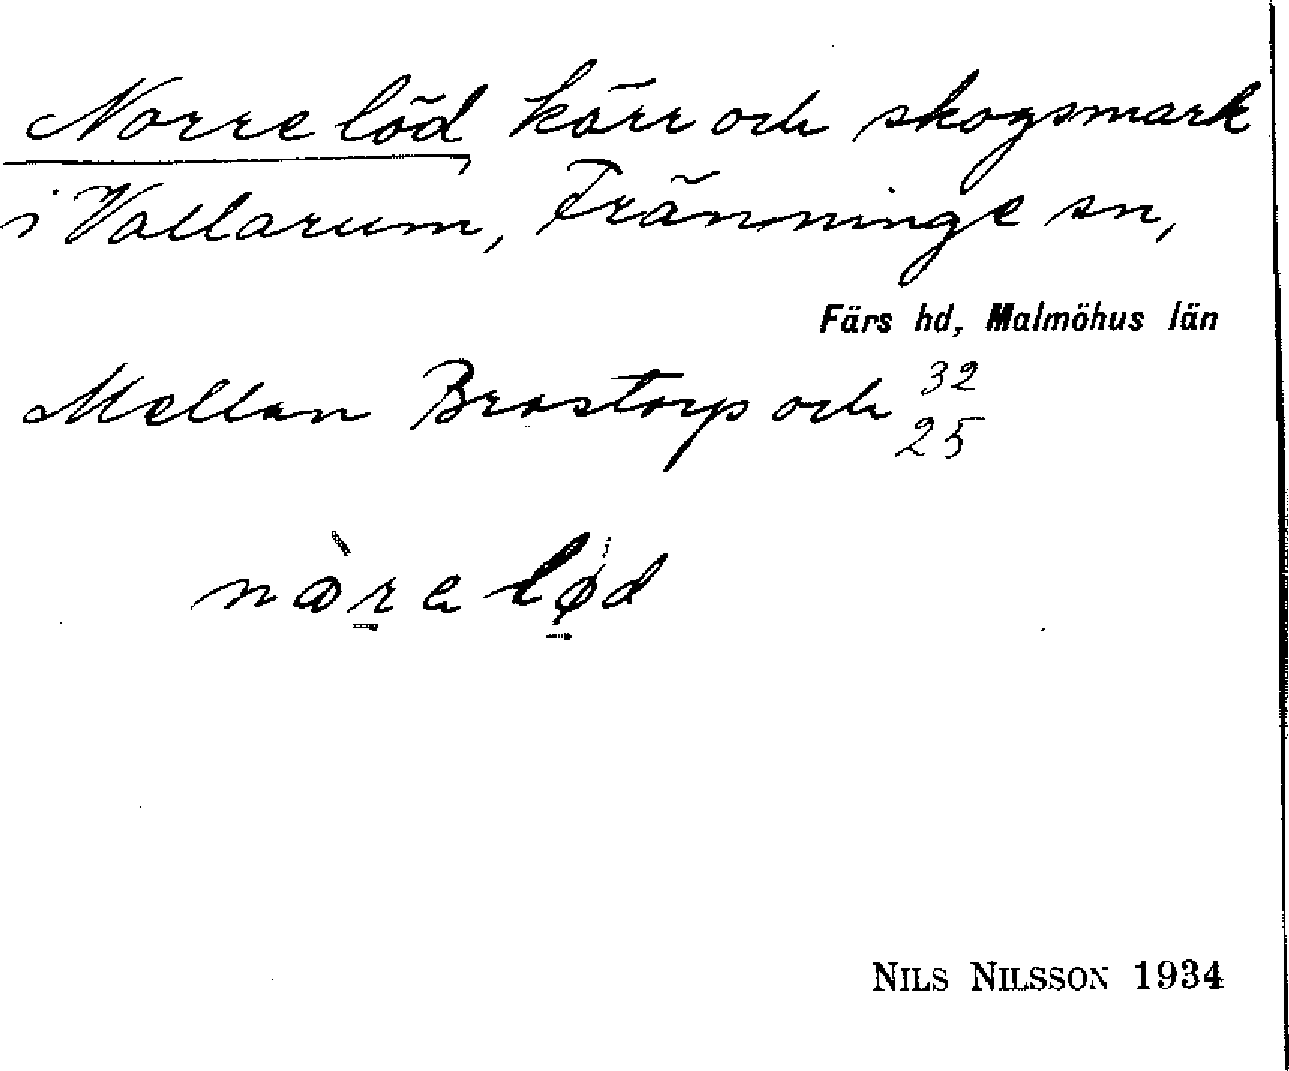 Norre löd kärr och skogsmark
i Vallarum, Fränninge sn,
Färs hd, Malmöhus län
Mellan Brostorp och 32
25
NILS NILSSON 1934